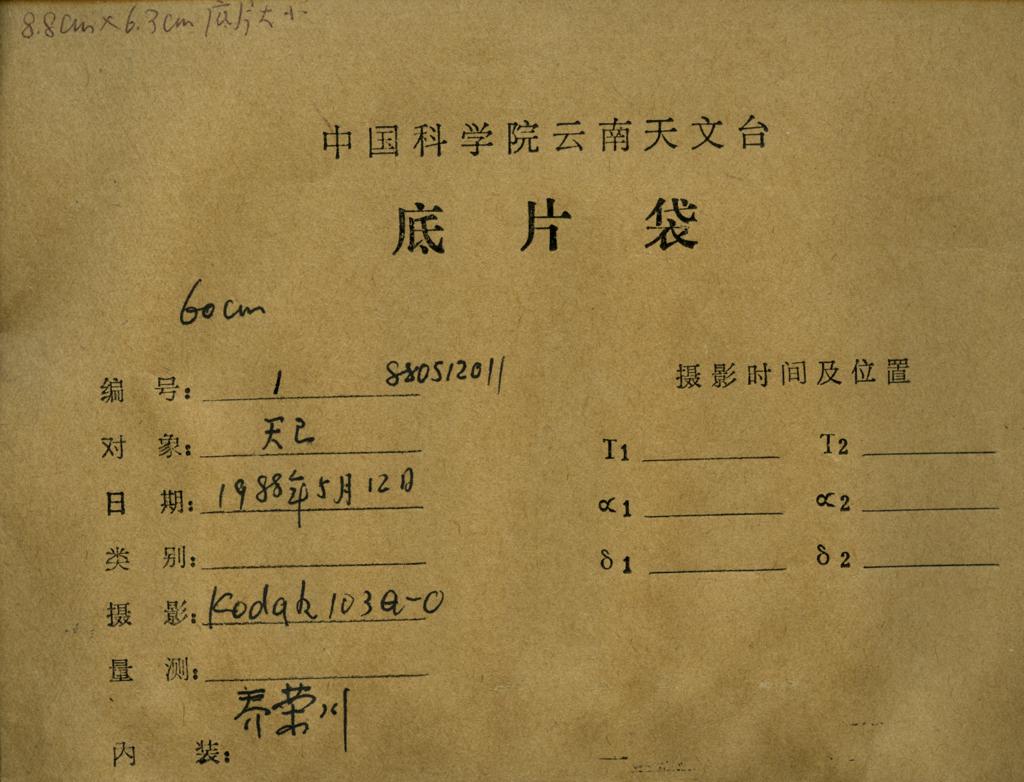 8.8cm×6.3cm 底片大小
中国科学院云南天文台
底片袋
60cm
编号: 1 880512011
对象: 天
日期: 1988年5月12日
类别:
摄影: Kodak 103a-O
量测:
荣川
内装:
摄影时间及位置
T1 T2
α1 α2
δ1 δ2